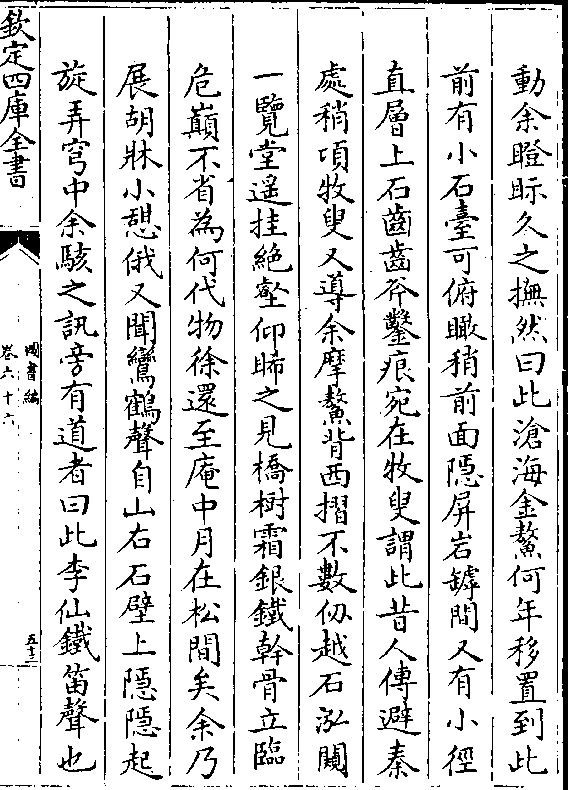 動余瞪眎久之撫然曰此滄海金鰲何年移置到此
前有小石臺可俯瞰稍前面隱屏岩罅間又有小徑
直層上石齒齒斧鑿痕宛在牧叟謂此昔人傳避秦
處稍項牧叟又導余摩鰲背西摺不數仭越石泓闚
一覽堂遥挂絶壑仰睎之見橋樹霜銀鐵幹骨立臨
危巔不省為何代物徐還至庵中月在松間矣余乃
展胡牀小憇俄又聞鸞鶴聲自山右石壁上隱隱起
旋弄穹中余駭之訊旁有道者曰此李仙鐵笛聲也
欽定四庫全書
圖書編
卷六十六
五十三